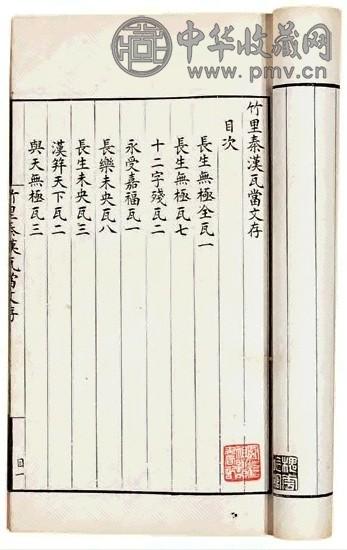 中华收藏网
www.pmv.cn
竹里秦漢瓦當文存
目次
長生無極全瓦一
長生無極瓦七
十二字殘瓦二
永受嘉福瓦一
長樂未央瓦八
長生未央瓦三
漢并天下瓦二
與天無極瓦三
竹里秦漢瓦當文存
目一